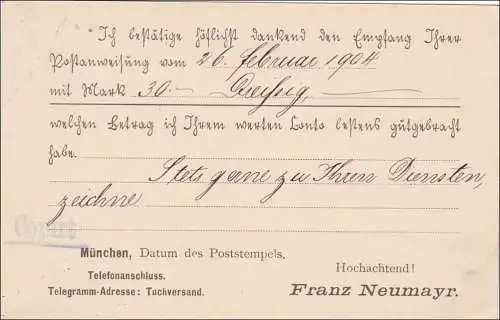 "Ich bestätige höflichst dankend den Empfang Ihrer
Postanweisung vom 26. Februar 1904
mit Mark 30.— Dreißig,
welchen Betrag ich Ihrem werten Conto bestens gutgebracht
habe.
Stets gerne zu Ihren Diensten,
zeichne
Copirt
München, Datum des Poststempels.
Hochachtend!
Telefonanschluss.
Telegramm-Adresse: Tuchversand.
Franz Neumayr.